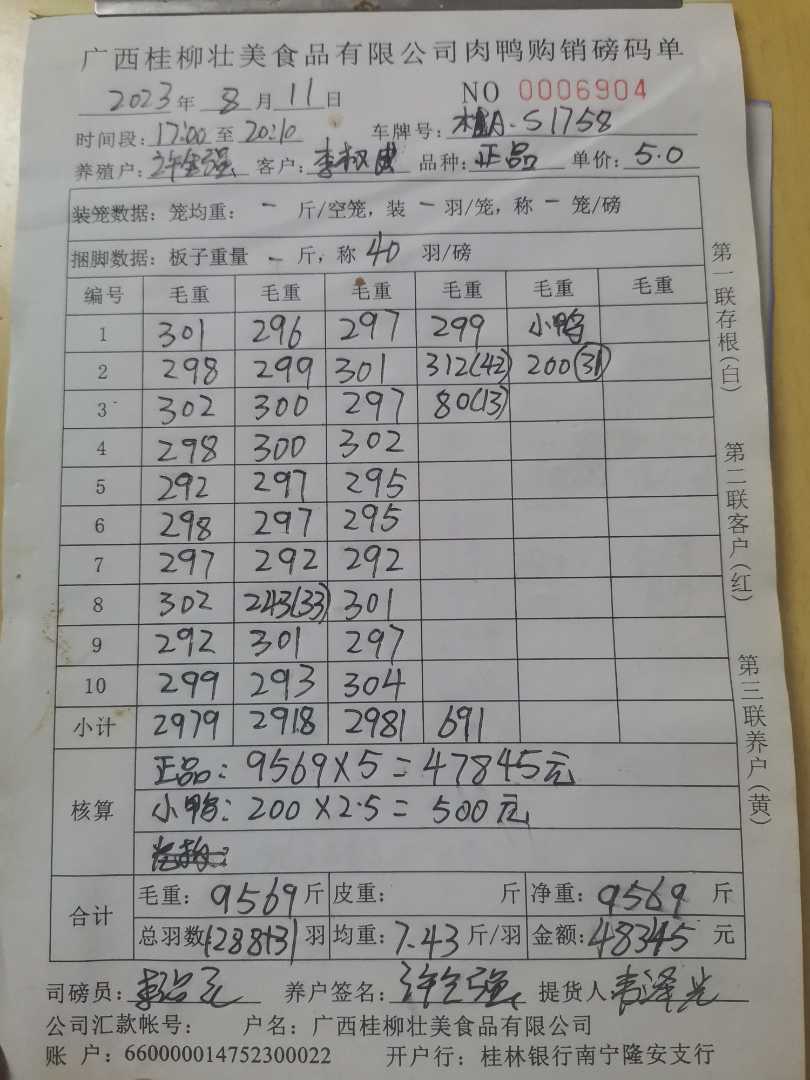 广西桂柳壮美食品有限公司肉鸭购销磅码单
2023年 8月 11日 NO 0006904
时间段: 17:00 至 20:10 车牌号: 桂A·S1758
养殖户: 许全强 客户: 李 品种: 正品 单价: 5.0
装笼数据: 笼均重: - 斤/空笼, 装 - 羽/笼, 称 - 笼/磅
捆脚数据: 板子重量 - 斤, 称 40 羽/磅
编号 毛重 毛重 毛重 毛重 毛重 毛重
1 301 296 297 299 小鸭
2 298 299 301 312(42) 200(31)
3 302 300 297 80(13)
4 298 300 302
5 292 297 295
6 298 297 295
7 297 292 292
8 302 243(33) 301
9 292 301 297
10 299 293 304
小计 2979 2918 2981 691
核算
正品: 9569×5=47845元
小鸭: 200×2.5=500元
合计
毛重: 9569斤 皮重: 斤 净重: 9569 斤
总羽数 1288+31 羽 均重: 7.43 斤/羽 金额: 48345 元
司磅员: 养户签名: 许全强 提货人 韦泽光
公司汇款帐号: 户名: 广西桂柳壮美食品有限公司
账 户: 660000014752300022 开户行: 桂林银行南宁隆安支行
第一联存根(白)
第二联客户(红)
第三联养户(黄)